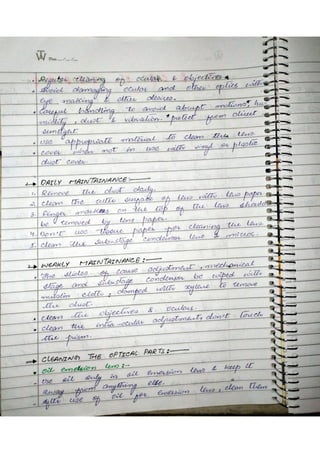 Date
• Regular cleaning of ocular & objectives
• Avoid damaging ocular and other optics with
eye making & other devices.
• Careful handling to avoid abrupt motions,
, dust & vibration. Protect from direct
sunlight
• Use appropriate material to clean the lens
• Cover when not in use with vinyl or plastic
dust cover.
→ DAILY MAINTAINANCE:—
1. Remove the dust daily.
2. Clean the outer surface of lens with lens paper
3. Finger markers on the top of the lens should
be removed by lens paper.
4. Don't use tissue paper for cleaning the lens
5. Clean the substage condenser lens &
→ WEAKLY MAINTAINANCE:—
• The slides of coarse adjustment, mechanical
stage and substage condenser be wiped with
muslin cloth, damped with xylene to remove
the dust.
• Clean the objectives & oculars.
• Clean the intra-ocular adjustments, don't touch
the prism.
→ CLEANING THE OPTICAL PARTS:—
• Oil emersion lens:—
- Use oil only in oil emersion lens & keep it
away from anything else.
- After use of oil for emersion lens, clean them